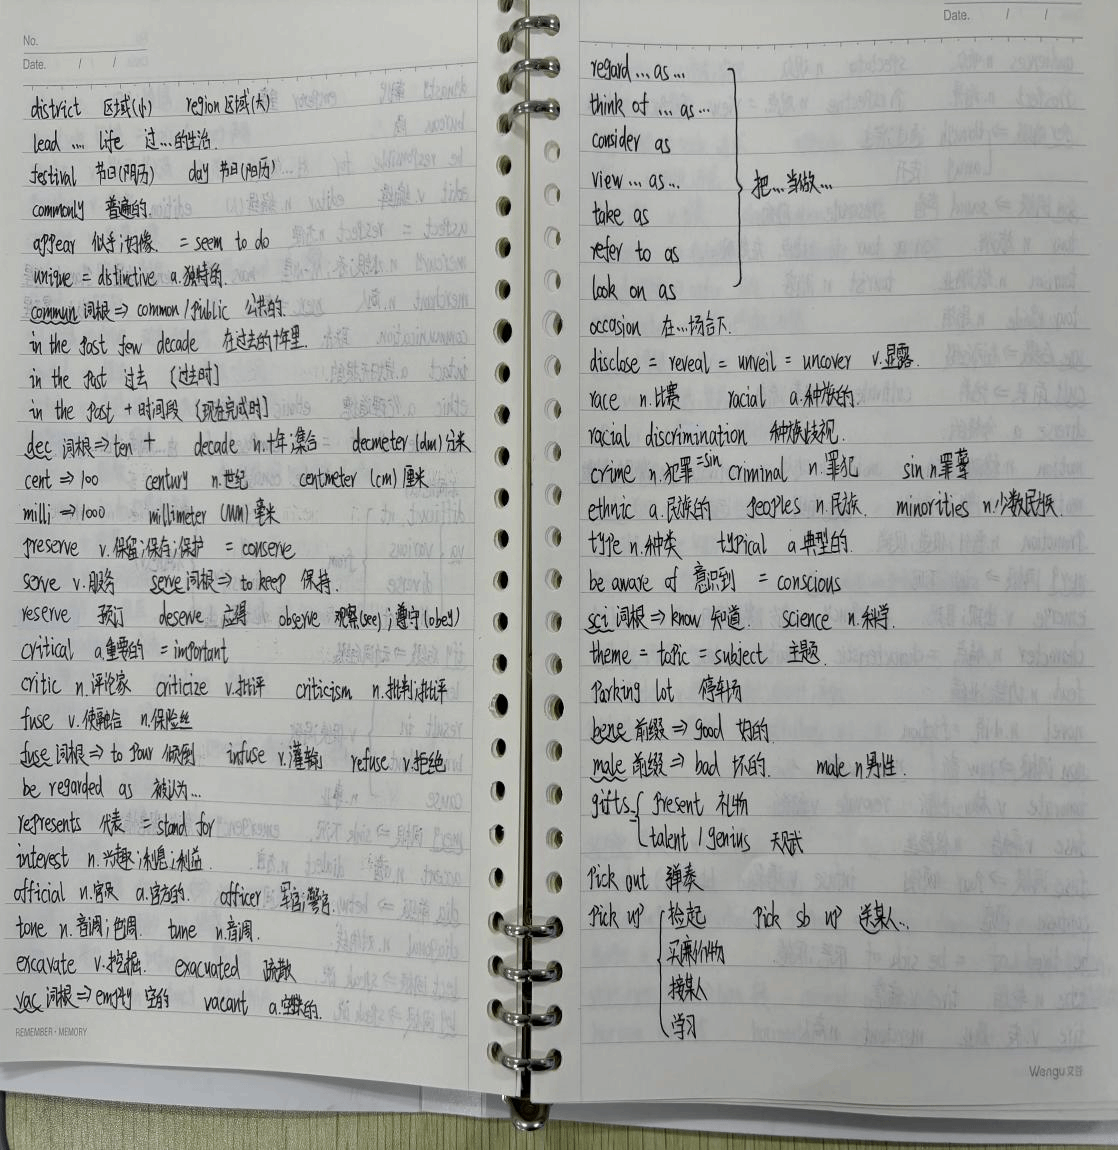 No.
Date. / /
district 区域(小) region 区域(大)
lead … life 过…的生活.
festival 节日(阴历) day 节日(阳历)
commonly 普遍的.
appear 似乎;好像. = seem to do
unique = distinctive a.独特的.
commun 词根 => common / public 公共的.
in the past few decade 在过去的十年里.
in the past 过去 [过去时]
in the past + 时间段 [现在完成时]
dec 词根 => ten 十 decade n.十年;集合 decmeter (dm) 分米
cent => 100 century n.世纪 centmeter (cm) 厘米
milli => 1000 millimeter (mm) 毫米
preserve v.保留;保存;保护 = conserve
serve v.服务 serve 词根 => to keep 保持.
reserve 预订 deserve 应得 observe 观察(see);遵守(obey)
critical a.重要的 = important
critic n.评论家 criticize v.批评 criticism n.批判;批评
fuse v.使融合 n.保险丝
fuse 词根 => to pour 倾倒 infuse v.灌输 refuse v.拒绝
be regarded as 被认为…
represents 代表 = stand for
interest n.兴趣;利息;利益.
official n.官员 a.官方的. officer 军官;警官.
tone n.音调;色调. tune n.音调.
excavate v.挖掘. exacuated 疏散
vac 词根 => empty 空的 vacant a.空缺的.
REMEMBER·MEMORY
Date. / /
regard … as …
think of … as …
consider as
view … as …
take as
refer to as
look on as
把…当做…
occasion 在…场合下.
disclose = reveal = unveil = uncover v.显露.
race n.比赛 racial a.种族的.
racial discrimination 种族歧视.
crime n.犯罪 =sin criminal n.罪犯 sin n.罪孽
ethnic a.民族的 peoples n.民族. minorities n.少数民族.
type n.种类 typical a.典型的.
be aware of 意识到 = conscious
sci 词根 => know 知道. science n.科学.
theme = topic = subject 主题.
parking lot 停车场
bene 前缀 => good 好的
male 前缀 => bad 坏的. male n.男性.
gifts { present 礼物
talent / genius 天赋
pick out 弹奏
pick up { 捡起 pick sb up 送某人..
买廉价物
接某人
学习
Wengu 文谷